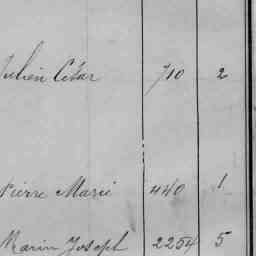 Julien César 710 2
Pierre Marie 440 1
Marin Joseph 2254 5